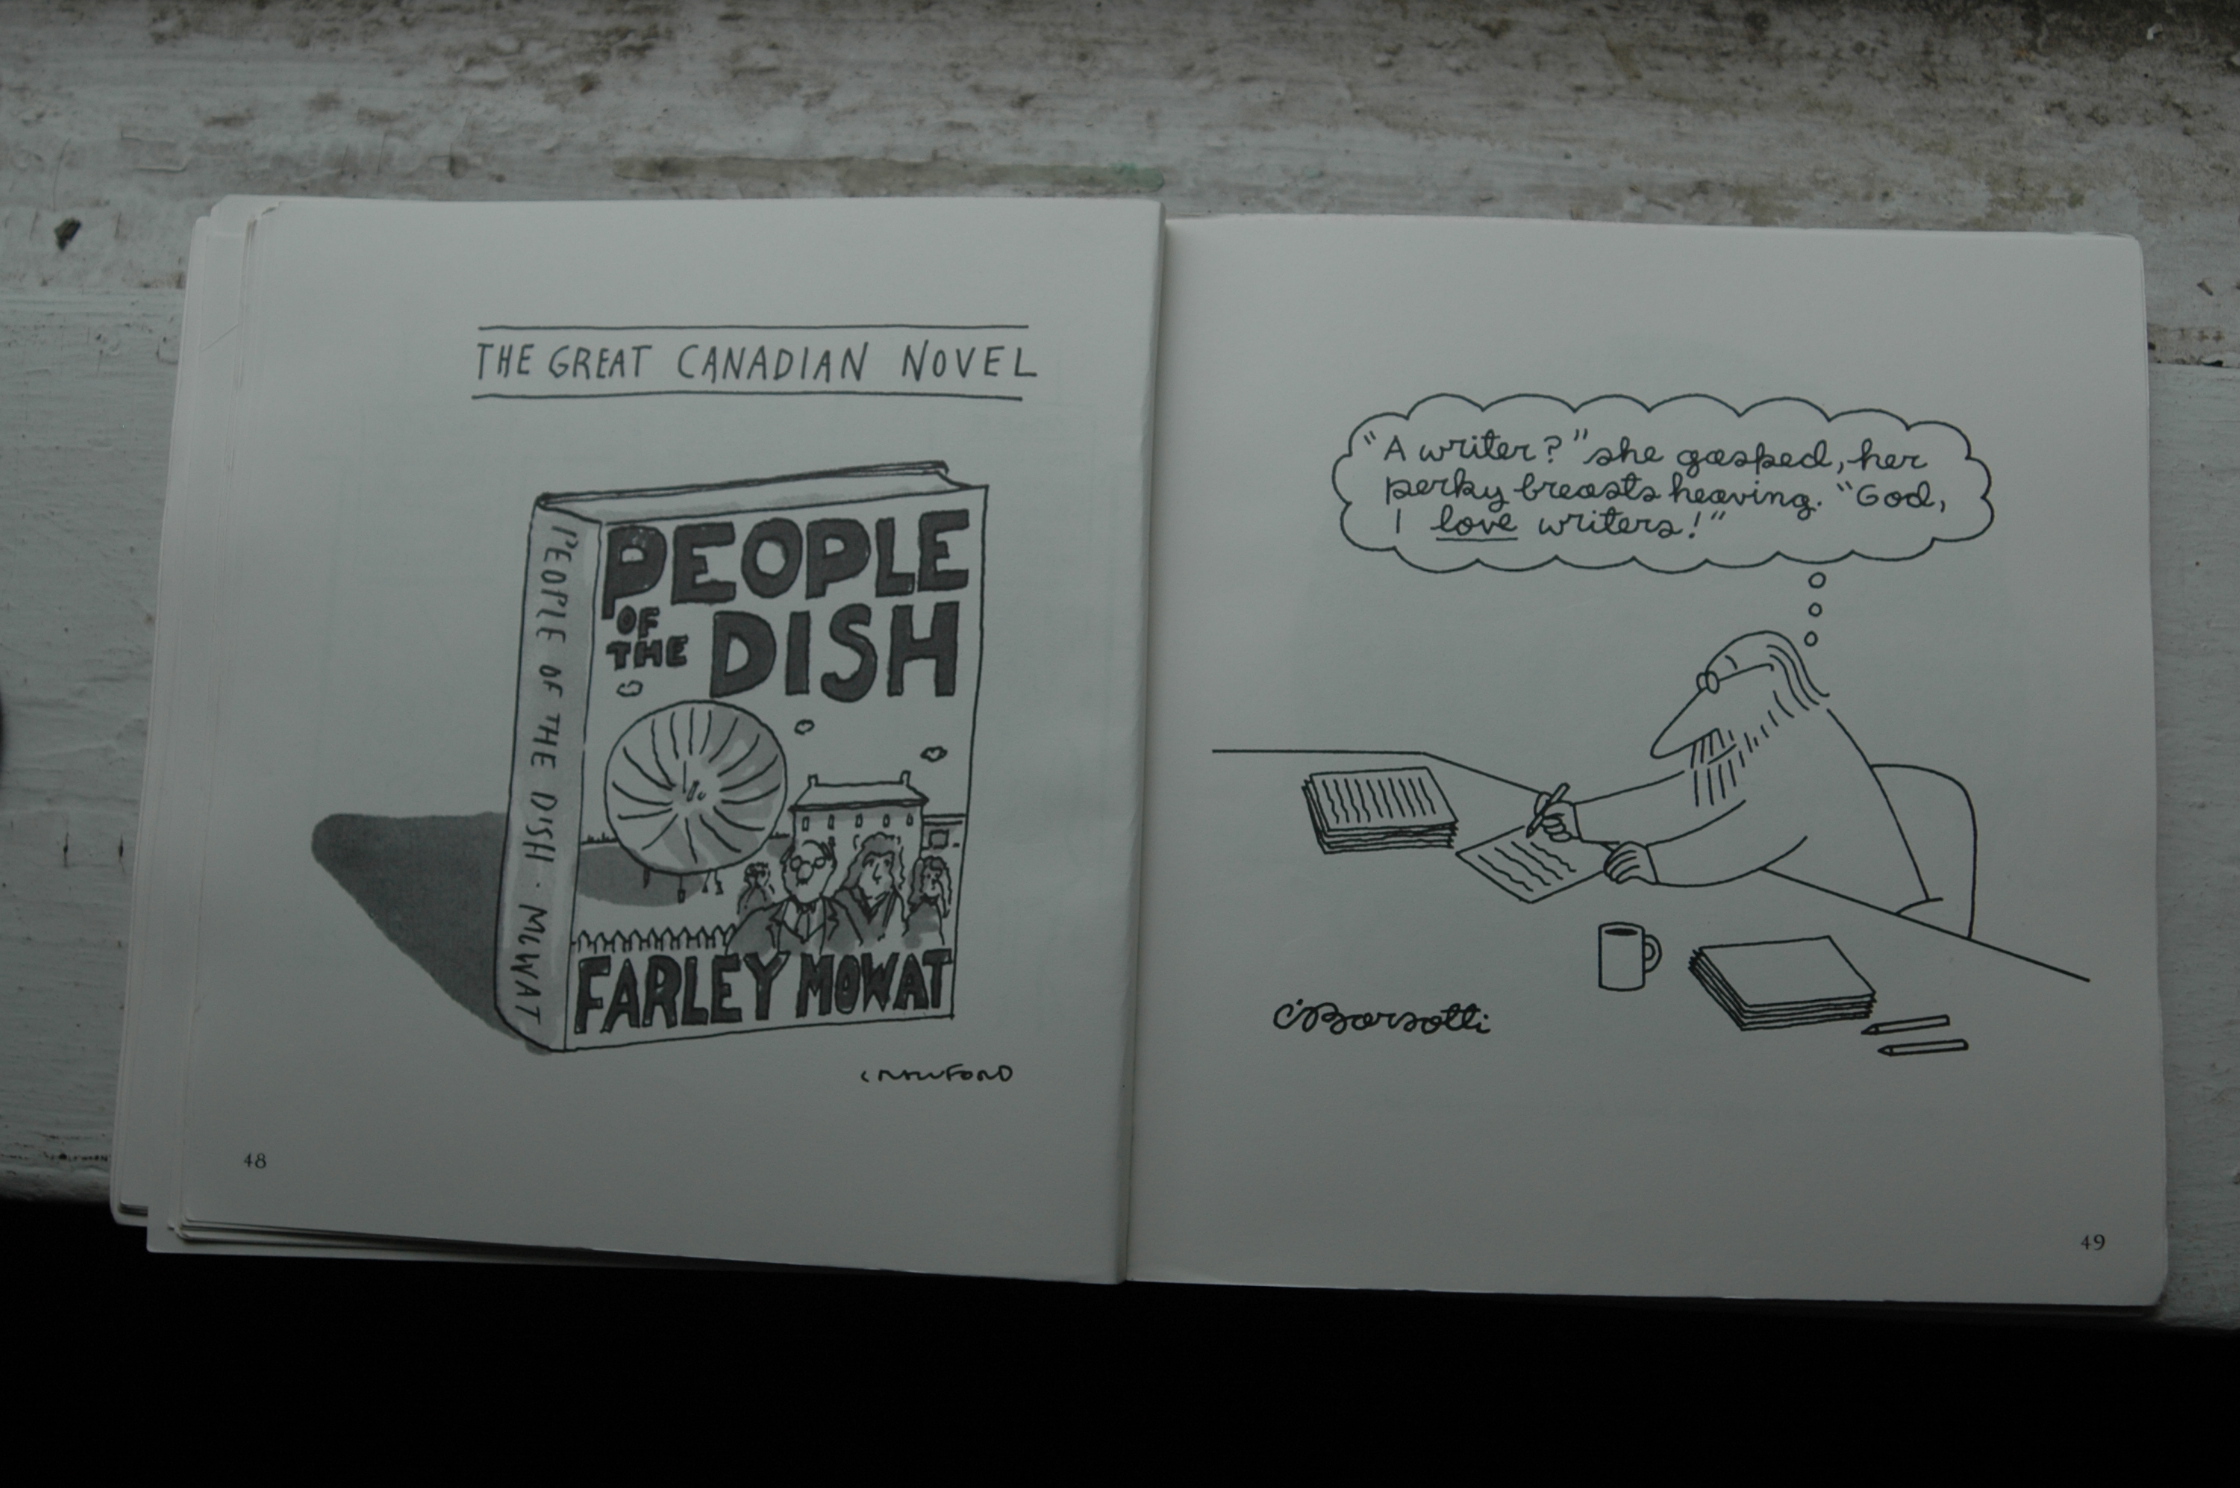 THE GREAT CANADIAN NOVEL
PEOPLE OF THE DISH · MOWAT
PEOPLE
OF
THE DISH
FARLEY MOWAT
CRAWFORD
48
"A writer?" she gasped, her
perky breasts heaving. "God,
I love writers!"
C. Barsotti
49